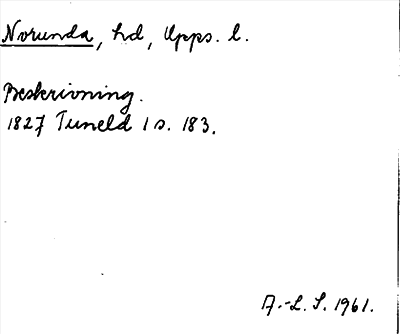 Norunda, hd, Upps. l.
Beskrivning.
1827 Tuneld 1 s. 183.
A.-L. S. 1961.